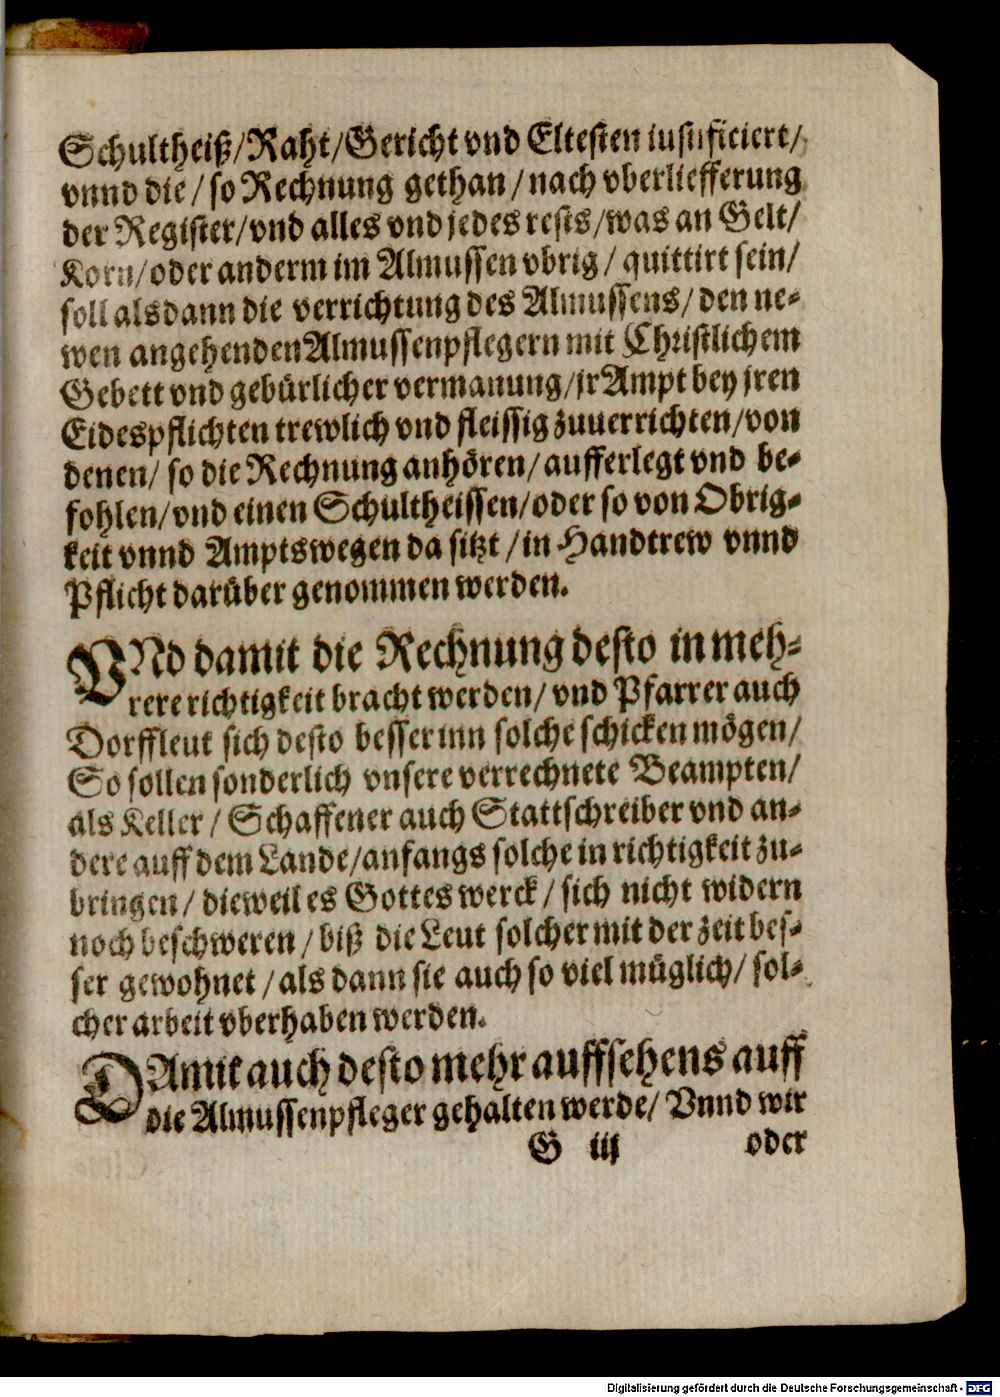 Schultheiß/Raht/Gericht vnd Eltesten iustificiert/
vnnd die/so Rechnung gethan/nach vberliefferung
der Register/vnd alles vnd jedes rests/was an Gelt/
Korn/oder anderm im Almussen vbrig/quittirt sein/
soll als dann die verrichtung des Almussens/den ne-
wen angehenden Almussenpflegern mit Christlichem
Gebett vnd gebürlicher vermanung/jr Ampt bey jren
Eidespflichten trewlich vnd fleissig zuuerrichten/von
denen/so die Rechnung anhören/aufferlegt vnd be-
fohlen/vnd einen Schultheissen/oder so von Obrig-
keit vnnd Amptswegen da sitzt/in Handtrew vnnd
Pflicht darüber genommen werden.
VNd damit die Rechnung desto in meh-
rere richtigkeit bracht werden/vnd Pfarrer auch
Dorffleut sich desto besser inn solche schicken mögen/
So sollen sonderlich vnsere verrechnete Beampten/
als Keller/Schaffener auch Stattschreiber vnd an-
dere auff dem Lande/anfangs solche in richtigkeit zu-
bringen/dieweil es Gottes werck/sich nicht widern
noch beschweren/biß die Leut solcher mit der zeit bes-
ser gewohnet/als dann sie auch so viel müglich/sol-
cher arbeit vberhaben werden.
DAmit auch desto mehr auffsehens auff
die Almussenpfleger gehalten werde/Vnnd wir
G iij oder
Digitalisierung gefördert durch die Deutsche Forschungsgemeinschaft - DFG